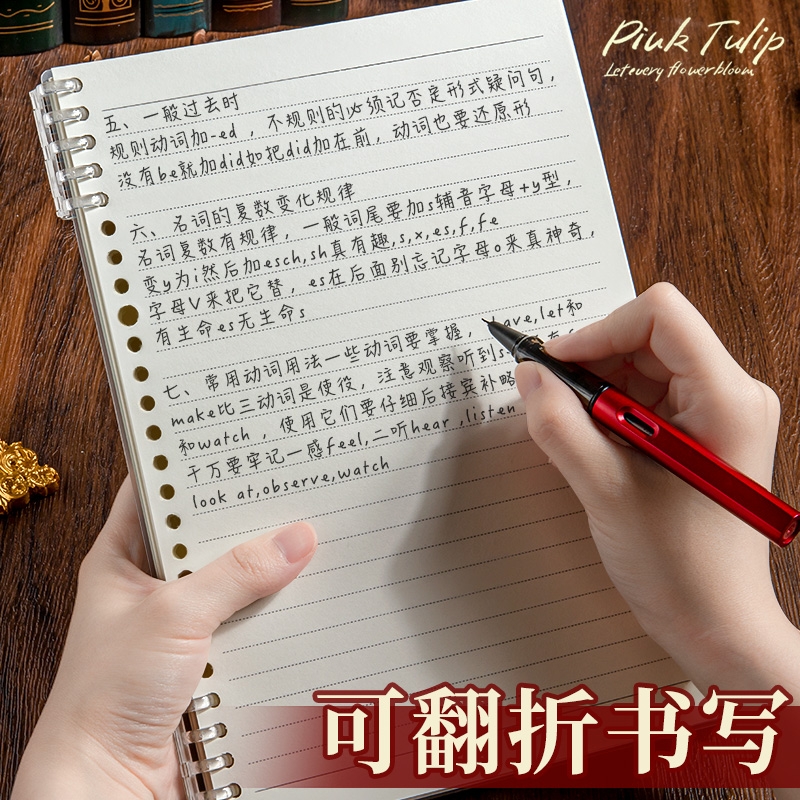 Piuk Tulip
Letevery flowerbloom
五、一般过去时
规则动词加-ed，不规则的必须记否定形式疑问句，
没有be就加did如把did加在前，动词也要还原形
六、名词的复数变化规律
名词复数有规律，一般词尾要加s辅音字母+y型，
变y为i然后加esch,sh真有趣,s,x,es,f,fe
字母V来把它替，es在后面别忘记字母o来真神奇，
有生命es无生命s
七、常用动词用法一些动词要掌握，have,let和
make比三动词是使役，注意观察听到s
和watch，使用它们要仔细后接宾补略
千万要牢记一感feel,二听hear,listen
look at,observe,watch
可翻折书写